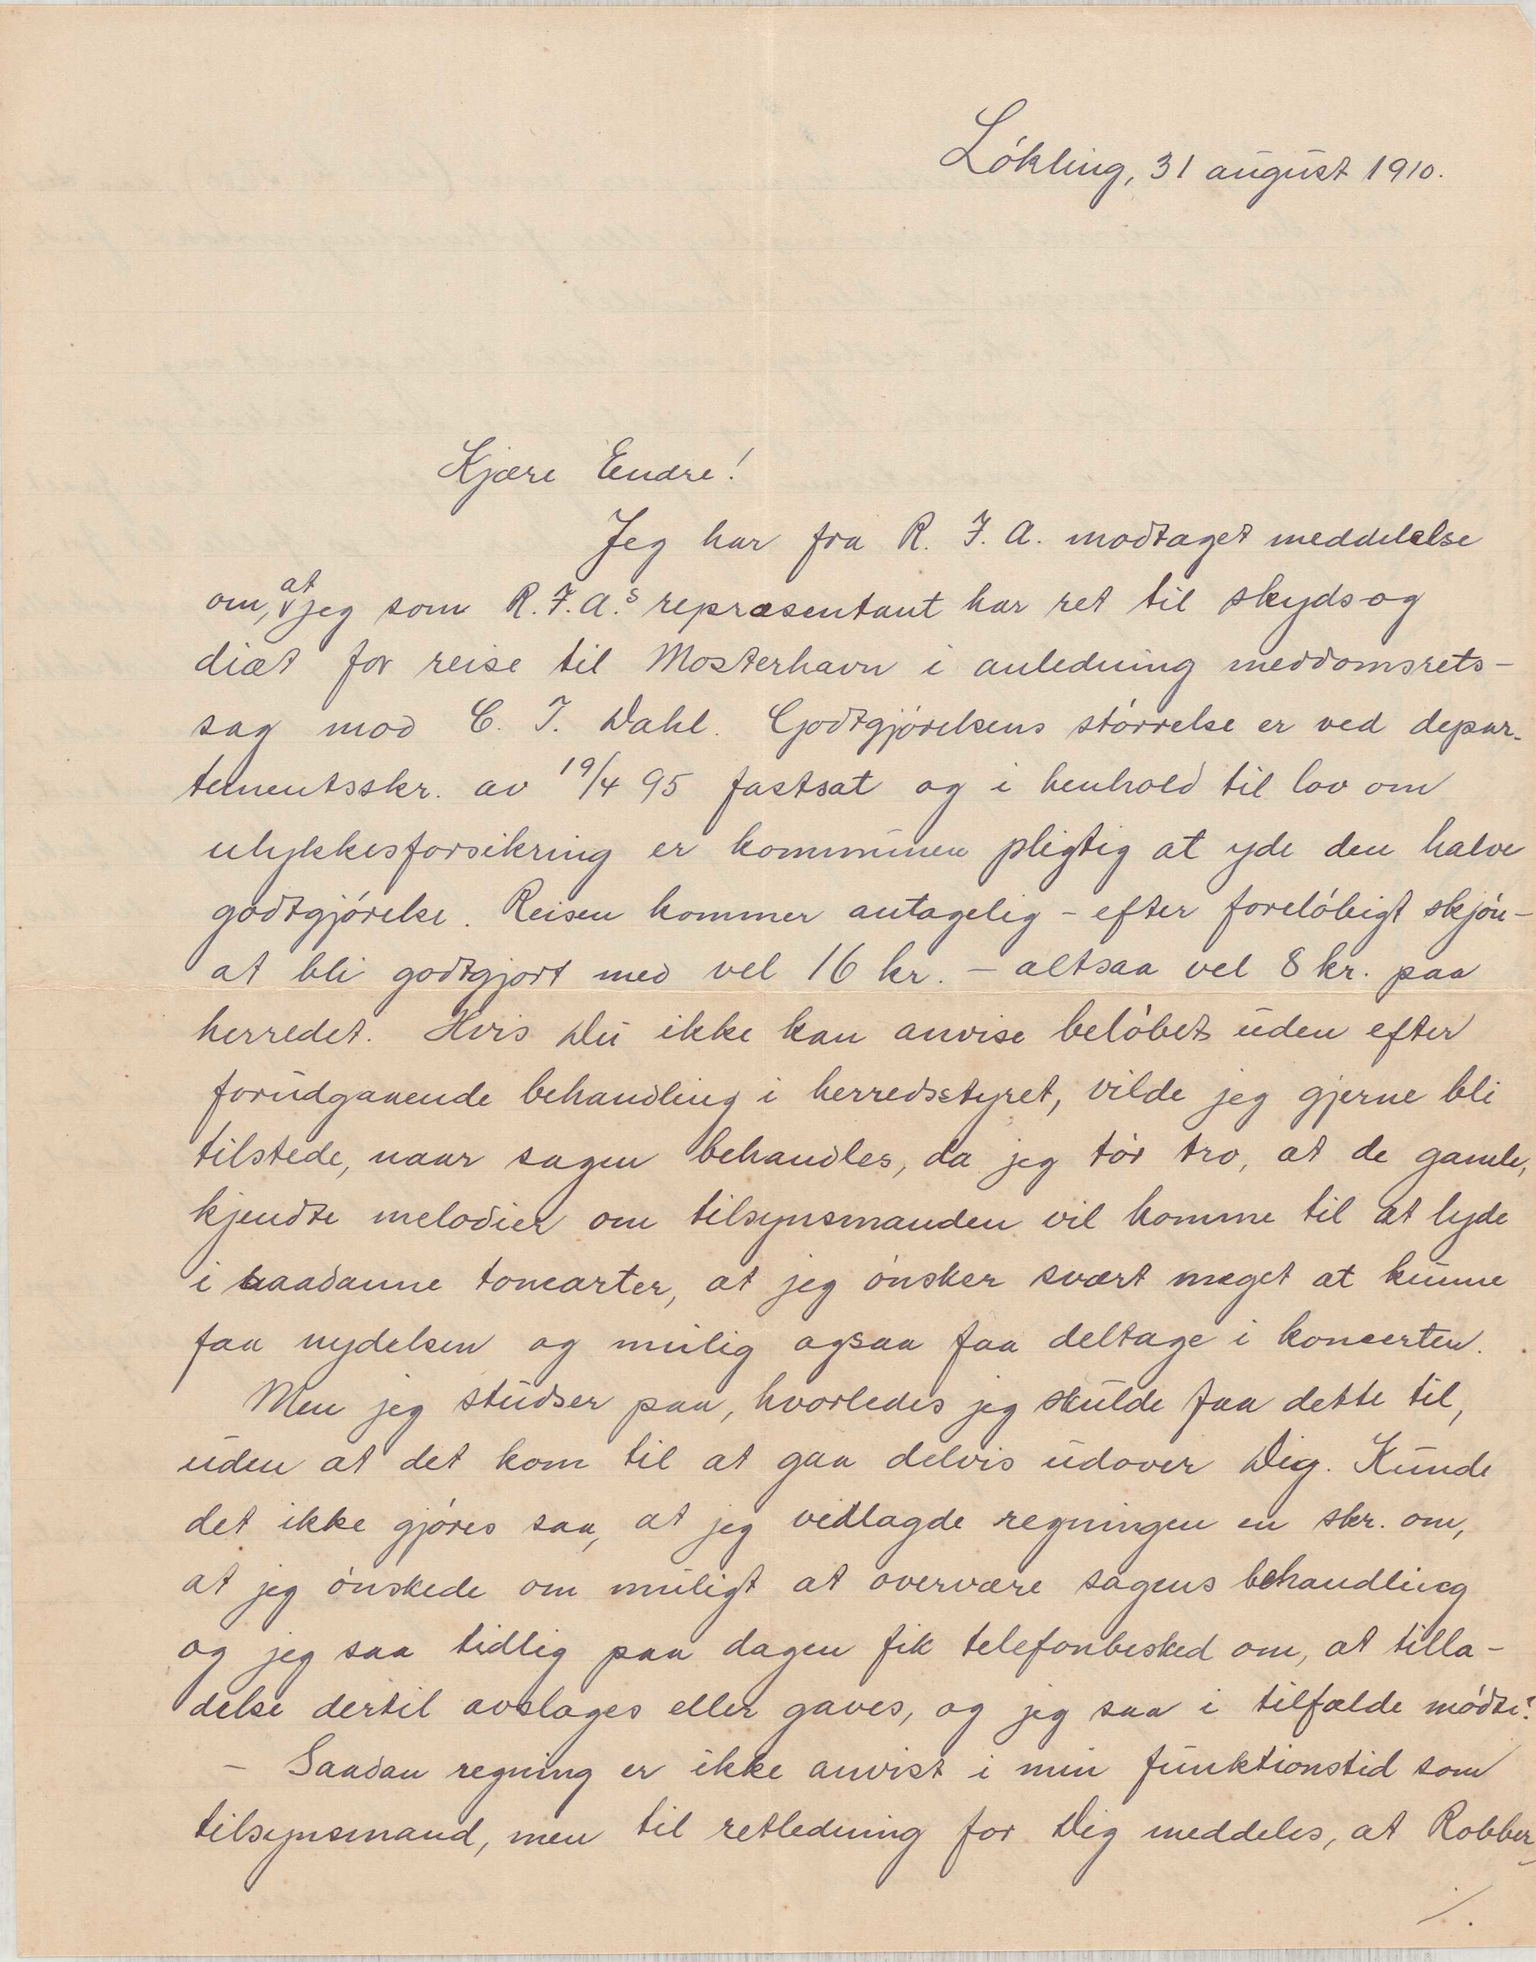 Løkling, 31 august 1910.
Kjære Endre!
Jeg har fra R. F. A. modtaget meddelelse
om, at jeg som R. F. A.s repræsentant har ret til skyds og
diæt for reise til Mosterhavn i anledning meddomsrets-
sag mod C. T. Dahl. Godtgjørelsens størrelse er ved depar-
tementsskr. av 19/4 95 fastsat og i henhold til lov om
ulykkesforsikring er kommunen pligtig at yde den halve
godtgjørelse. Reisen kommer antagelig - efter foreløbigt skjøn -
at bli godtgjort med vel 16 kr. - altsaa vel 8 kr. paa
herredet. Hvis Du ikke kan anvise beløbet uden efter
forudgaaende behandling i herredsstyret, vilde jeg gjerne bli
tilstede, naar sagen behandles, da jeg tør tro, at de gamle,
kjendte melodier om tilsynsmanden vil komme til at lyde
i saadanne tonearter, at jeg ønsker svært meget at kunne
faa nydelsen og mulig ogsaa faa deltage i koncerten.
Men jeg studser paa, hvorledes jeg skulde faa dette til,
uden at det kom til at gaa delvis udover Dig. Kunde
det ikke gjøres saa, at jeg vedlagde regningen en skr. om,
at jeg ønskede om muligt at overvære sagens behandling
og jeg saa tidlig paa dagen fik telefonbesked om, at tilla-
delse dertil avslages eller gaves, og jeg saa i tilfælde mødte?
- Saadan regning er ikke anvist i min funktionstid som
tilsynsmand, men til retledning for Dig meddeles, at Robber-
./.